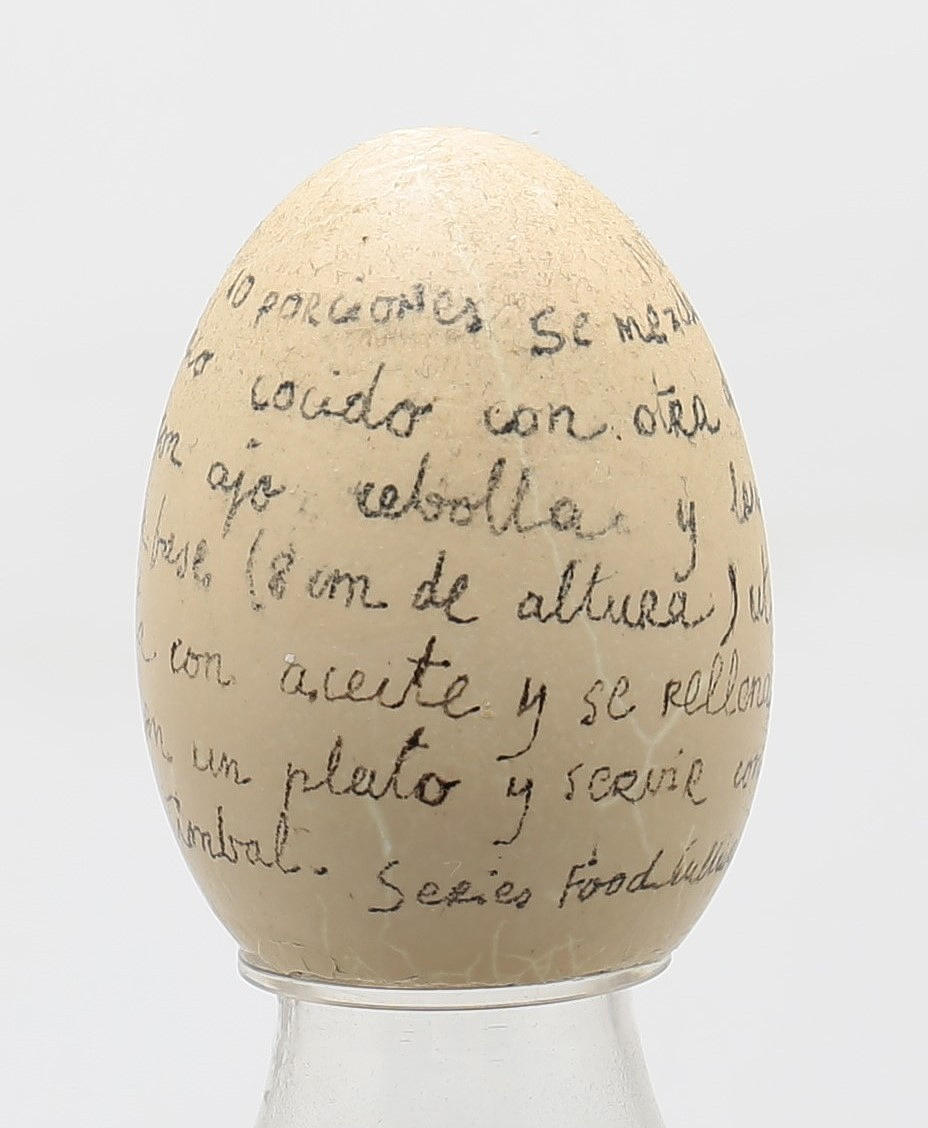 10 PORCIONES Se
cocido con otra
ajo cebolla y
base (8 cm de altura)
con aceite y se rellena
un plato y servir
Timbal.
Series Food